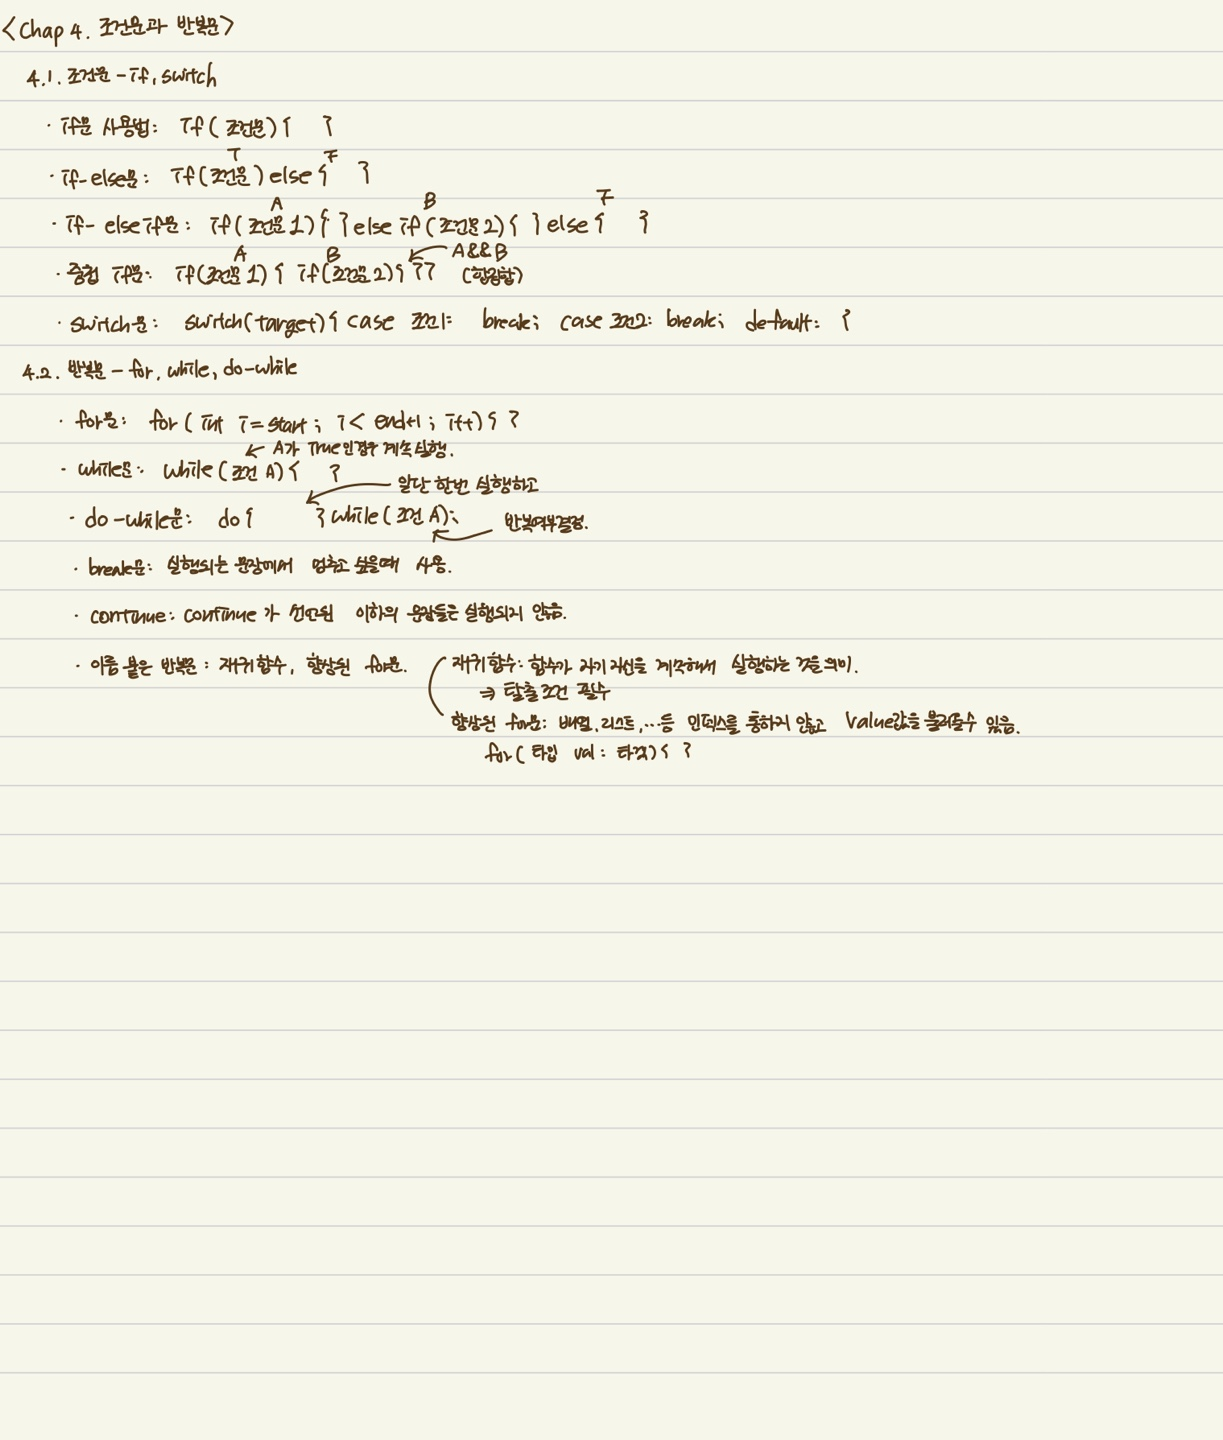 <Chap 4. 조건문과 반복문>
4.1. 조건문 - if, switch
· if문 사용법: if( 조건문) { }
T F
· if-else문: if(조건문) else { }
A B F
· if- else if문: if( 조건문 1) { } else if( 조건문 2) { } else { }
A B A&&B
· 중첩 if문: if(조건문 1) { if(조건문 2) { }} (합집합)
· switch문: switch(target) { case 조건1: break; case 조건2: break; default: }
4.2. 반복문 - for, while, do-while
· for문: for( int i = start ; i < end+1 ; i++) { }
← A가 True인경우 계속실행.
· while문: while( 조건 A) { }
일단 한번 실행하고
· do-while문: do { } while( 조건 A);
반복여부결정.
· break문: 실행되는 문장에서 멈추고 싶을때 사용.
· continue: continue가 선언된 이하의 문장들은 실행되지 않음.
· 이름 붙은 반복문 : 재귀함수, 향상된 for문.
재귀함수: 함수가 자기 자신을 계속해서 실행하는 것을 의미.
⇒ 탈출 조건 필수
향상된 for문: 배열, 리스트, ...등 인덱스를 통하지 않고 Value값을 불러올수 있음.
for( 타입 val : 타겟) { }